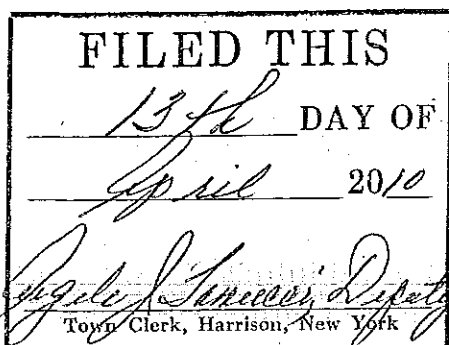 FILED THIS
13th DAY OF
April 2010
Angelo J. Deputy
Town Clerk, Harrison, New York